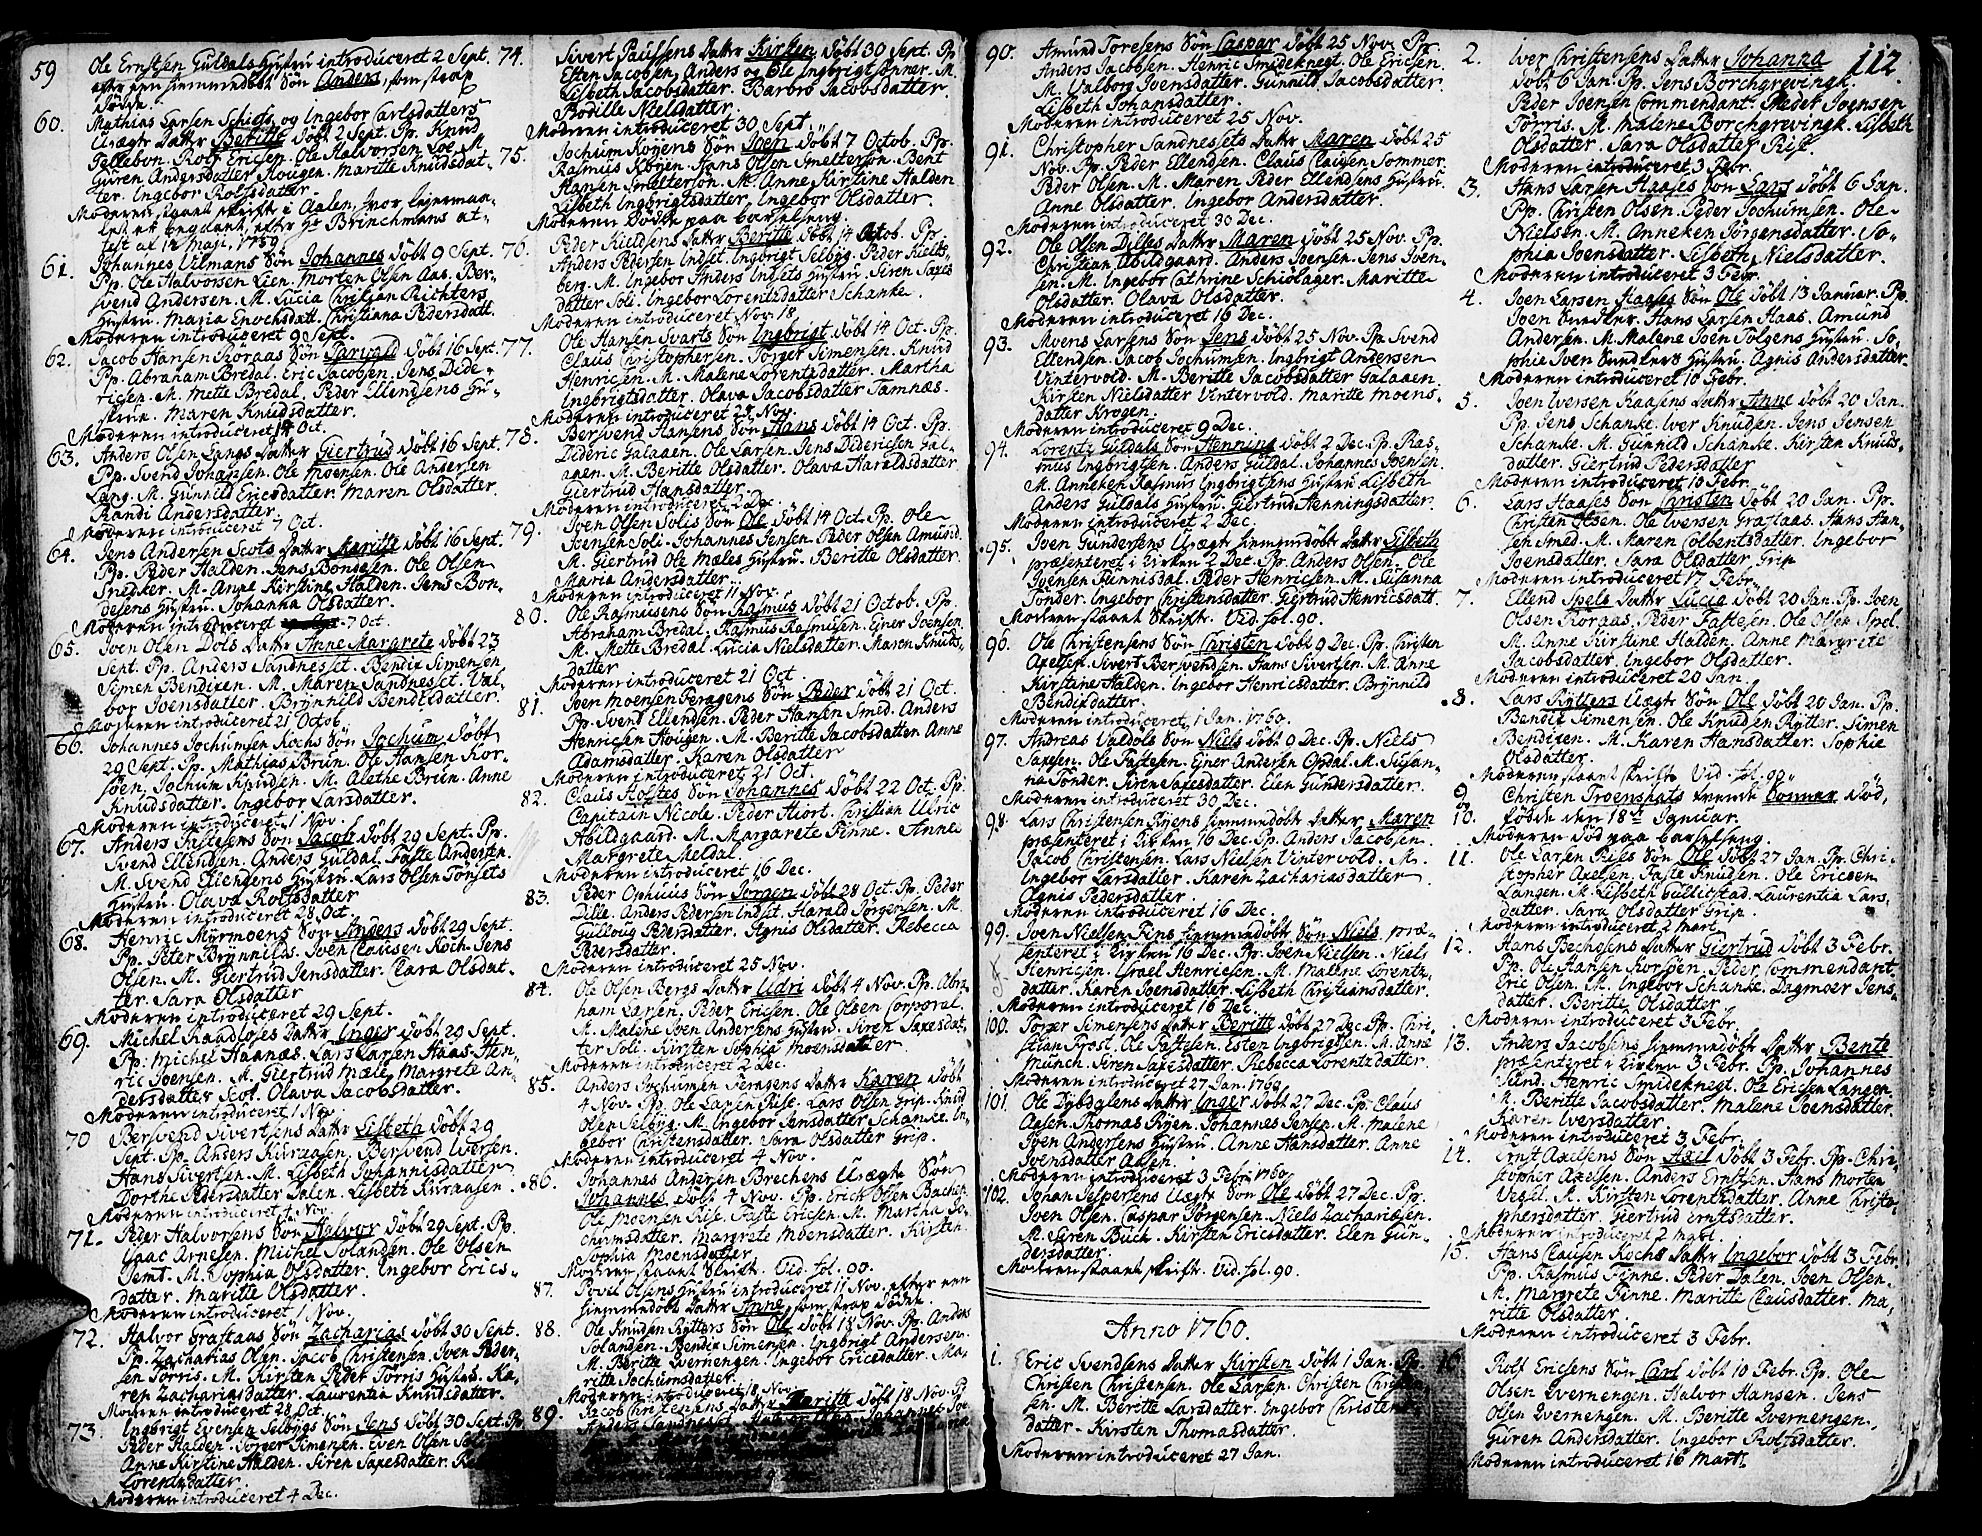 59 Ole Ernstsen Guldals Hustru introduceret 2 Sept.
efter een hiemmedøbt Søn Anders, som strax
døde.
60. Mathias Larsen Schiefs og Ingebor Carlsdatters
Uægte Datter Beritte døbt 2 Sept. Pp. Knud
Tellebon. Rolf Ericsen. Ole Halvorsen Loe. M.
Guren Andersdatter Hougen. Maritte Knudsdat-
ter. Ingebor Rolfsdatter.
Moderen staaet skrifte i Aalen,
test af 12 Maji, 1759.
61. Johannes Vilmans Søn Johannes døbt 9 Sept.
Pp. Ole Halvorsen Lien. Morten Olsen Aas. Ber-
svend Andersen. M. Lucia Christian Richters
Hustru. Maria Enochsdatt. Christiana Pedersdatt.
Moderen introduceret 9 Sept.
62. Jacob Hansen Koraas Søn døbt 16 Sept.
Pp. Abraham Bredal. Eric Jacobsen. Jens Dide-
ricsen. M. Mette Bredal. Peder Ellendsens Hu-
stru. Maren Knudsdatter.
Moderen introduceret 14 Oct.
63. Anders Olsen Langs Datter Giertrud døbt 16 Sept.
Pp. Svend Johansen. Ole Moensen. Ole Andersen
Lang. M. Gunnild Ericsdatter. Maren Olsdatter.
Randi Andersdatter.
Moderen introduceret 7 Oct.
64. Jens Andersen Scots Datter Maritte døbt 16 Sept.
Pp. Peder Halden. Jens Bondesen. Ole Olsen
Snedker. M. Anne Kirstine Halden. Jens Bon-
desens Hustru. Johanna Olsdatter.
Moderen introduceret 7 Oct.
65. Joen Olsen Dols Datter Anne Margrete døbt 23
Sept. Pp. Anders Sandnesset. Bendix Simensen
Simen Bendixen. M. Maren Sandnesset. Val-
bor Joensdatter. Brynnild Bendixdatter.
Moderen introduceret 21 Octob.
66. Johannes Jochumsen Kochs Søn Jochum døbt
29 Sept. Pp. Mathias Brun. Ole Hansen Kor-
søen. Jochum Knudsen. M. Alethe Brun. Anne
Knudsdatter. Ingebor Larsdatter.
Moderen introduceret 1 Nov.
67. Anders Fastesens Søn Jacob døbt 29 Sept. Pp.
Svend Ellendsen. Anders Guldal. Faste Andersen.
M. Svend Ellendsens Hustru. Lars Olsen Tønsets
Hustru. Olava Rolfsdatter
Moderen introduceret 28 Oct.
68. Henric Myrmoens Søn Anders døbt 29 Sept.
Pp. Peter Brynnilds. Joen Clausen Koch. Jens
Olsen. M. Giertrud Jensdatter. Clara Olsdat-
ter. Sara Olsdatter
Moderen introduceret 29 Sept.
69. Michel Raadloses Datter Inger døbt 29 Sept.
Pp. Michel Haanæs. Lars Larsen Haas. Hen-
ric Joensen. M. Giertrud Mæle. Margrete An-
dersdatter Scot. Olava Jacobsdatter.
Moderen introduceret 1 Nov.
70 Bersvend Sivertsens Datter Lisbeth døbt 29
Sept. Pp. Anders Kurasen. Bersvend Iversen.
Hans Sivertsen. M. Lisbeth Johannisdatter
Dorthe Pedersdatter Dalen. Lisbeth Kurasen.
Moderen introduceret 4 Nov.
71. Peder Halvorsens Søn Halvor døbt 29 Sept. Pp.
Isaac Arnesen. Michel Solandsen. Ole Olsen
Jemt. M. Sophia Olsdatter. Ingebor Erics-
datter. Maritte Olsdatter
Moderen introduceret 1 Nov.
72. Halvor Grafsaas Søn Zacharias døbt 30 Sept.
Pp. Zacharias Olsen. Jacob Christensen. Joen Peder-
sen Torris. M. Kirsten Peder Torris Hustru. Ka-
ren Zachariasdatter. Laurentia Knudsdatter.
Moderen introduceret 28 Oct.
73. Ingbrigt Evensen Selbygs Søn Jens døbt 30 Sept. Pp.
Peder Halden. Jørger Simensen. Even Olsen
Anne Kirstine Halden. Siren Saxesdatter.
Lorentzdatter.
Moderen introduceret 4 Dec.
74. Sivert Paulsens Datter Kirsten døbt 30 Sept. Pp.
Esten Jacobsen. Anders og Ole Ingbrigtsønner. M.
Lisbeth Jacobsdatter. Barbro Jacobsdatter.
Bodille Nielsdatter.
Moderen introduceret 30 Sept.
75. Jochum Kønens Søn Joen døbt 7 Octob. Pp.
Rasmus Kønen. Hans Olsen Smeltersøn. Bent
Hansen Smeltersøn. M. Anne Kirstine Halden
Lisbeth Ingbrigtsdatter. Ingebor Olsdatter.
Moderen døde paa barselseng.
76. Peder Kieldsens Datter Beritte døbt 14 Octob. Pp.
Anders Pedersen Indset. Ingbrigt Selbyg. Peder Kiels-
berg. M. Ingebor Anders Indsets Hustru. Siren Saxes
datter Soli. Ingebor Lorentzdatter Schanke.
Moderen introduceret Nov. 18
77. Ole Hansen Svarts Søn Ingbrigt døbt 14 Oct. Pp.
Claus Christophersen. Jørger Simensen. Knud
Henricsen. M. Malene Lorentzdatter. Martha
Ingbrigtsdatter. Olava Jacobsdatter Tamnæs.
Moderen introduceret 25 Nov.
78. Bersvend Hansens Søn Hans døbt 14 Oct. Pp.
Dideric Galaaen. Ole Larsen. Jens Didericsen Gal-
aaen. M. Beritte Olsdatter. Olava Haraldsdatter
Giertrud Hansdatter.
Moderen introduceret 2 Dec.
79. Joen Olsen Solis Søn Ole døbt 14 Oct. Pp. Ole
Joensen Soli. Johannes Jensen. Peder Olsen Amund.
M. Giertrud Ole Mæles Hustru. Beritte Olsdatter.
Maria Andersdatter.
Moderen introduceret 11 Nov.
80. Ole Rasmusens Søn Rasmus døbt 21 Octob. Pp.
Abraham Bredal. Rasmus Rasmusen. Einer Joensen.
M. Mette Bredal. Lucia Nielsdatter. Maren Knuds-
datter
Moderen introduceret 21 Oct.
81. Joen Moensen Feragens Søn Peder døbt 21 Oct.
Pp. Svend Ellendsen. Peder Hansen Smed. Anders
Henricsen Hougen. M. Beritte Jacobsdatter. Anne
Adamsdatter. Karen Olsdatter
Moderen introduceret 21 Oct.
82. Claus Holstes Søn Johannes døbt 22 Oct. Pp.
Capitain Nicole. Peder Hiort. Christian Ulric
Abildgaard. M. Margarete Finne. Anne
Margrete Meldal.
Moderen introduceret 16 Dec.
83. Peder Ophuus Søn Jørgen døbt 28 Oct. Pp. Peder
Dille. Anders Pedersen Indset. Harald Jørgensen. M.
Gullovig Pedersdatter. Agnis Olsdatter. Rebecca
Pedersdatter
Moderen introduceret 25 Nov.
84. Ole Olsen Bergs Datter Udri døbt 4 Nov. Pp. Abra-
ham Larsen. Peder Ericsen. Ole Olsen Corporal.
M. Malene Joen Andersens Hustru. Siren Saxesdat-
ter Soli. Kirsten Sophia Moensdatter
Moderen introduceret 2 Dec.
85. Anders Jochumsen Feragens Datter Karen døbt
4 Nov. Pp. Ole Larsen Rise. Lars Olsen Grip. Knud
Olsen Selbyg. M. Ingebor Jensdatter Schanke. In-
gebor Christensdatter. Sara Olsdatter Grip.
Moderen introduceret 4 Nov.
86. Johannes Andersen Brechens Uægte Søn
Johannes døbt 4 Nov. Pp. Erich Olsen Bachen
Ole Moensen Rise. Faste Ericsen. M. Martha Jo-
chumsdatter. Margrete Moensdatter. Kirsten
Sophia Moensdatter
Moderen staaet skrift. Vid. fol. 90.
87. Povel Olsens Hustru introduceret 11 Nov. efter een
hiemmedøbt Datter Anne, som strax døde.
88. Ole Knudsen Rytters Søn Ole døbt 18 Nov. Pp. Anders
Solandsen. Bendix Simensen. Ingbrigt Andersen.
M. Beritte Qvernengen. Ingebor Ericsdatter. Ma-
ritte Jochumsdatter.
Moderen introduceret 18 Nov.
89. Jacob Christensens Datter Maritte døbt 18 Nov. P
Anders Sandnesset.
90. Amund Toresens Søn Caspar døbt 25 Nov. Pp.
Anders Jacobsen. Henric Smideknegt. Ole Ericsen.
M. Valborg Joensdatter. Gunnild Jacobsdatter.
Lisbeth Johansdatter.
Moderen introduceret 25 Nov.
91. Christopher Sandnessets Datter Maren døbt 25
Nov. Pp. Peder Ellendsen. Claus Clausen Sommer.
Peder Olsen. M. Maren Peder Ellendsens Hustru.
Anne Olsdatter. Ingebor Andersdatter.
Moderen introduceret 30 Dec.
92. Ole Olsen Dilles Datter Maren døbt 25 Nov. Pp.
Christian Abildgaard. Anders Joensen. Jens Joen-
sen. M. Ingebor Cathrine Schiølager. Maritte
Olsdatter. Olava Olsdatter.
Moderen introduceret 16 Dec.
93. Moens Larsens Søn Jens døbt 25 Nov. Pp. Svend
Ellendsen. Jacob Jochumsen. Ingbrigt Andersen
Vintervold. M. Beritte Jacobsdatter Galaaen.
Kirsten Nielsdatter Vintervold. Maritte Moens-
datter Krogen.
Moderen introduceret 9 Dec.
94. Lorentz Guldals Søn Henning døbt 2 Dec. Pp. Ras-
mus Ingbrigtsen. Anders Guldal. Johannes Joensen.
M. Anneken Rasmus Ingbrigtsens Hustru. Lisbeth
Anders Guldals Hustru. Giertrud Henningsdatter.
Moderen introduceret 2 Dec.
95. Joen Gundersens Uægte hiemmedøbte Datter Lisbeth
præsenteret i Kirken 2 Dec. Pp. Anders Olsen. Ole
Joensen Funnisdal. Peder Henricsen. M. Susanna
Tønder. Ingebor Christensdatter. Giertrud Henricsdatt.
Moderen staaet Skrift. Vid. fol. 90.
96. Ole Christensens Søn Christen døbt 9 Dec. Pp. Christen
Axelsen. Sivert Bersvendsen. Hans Sivertsen. M. Anne
Kirstine Halden. Ingebor Henricsdatter. Brynnild
Bendixdatter.
Moderen introduceret 1 Jan. 1760.
97. Andreas Valdøls Søn Niels døbt 9 Dec. Pp. Niels
Saxesen. Ole Fastesen. Einer Andersen Opdal. M. Susan-
na Tønder. Siren Saxesdatter. Elen Gundersdatter.
Moderen introduceret 30 Dec.
98. Lars Christensen Ryens hiemmedøbte Datter Maren
præsenteret i Kirken 16 Dec. Pp. Anders Jacobsen.
Jacob Christensen. Lars Nielsen Vintervold. M.
Ingebor Larsdatter. Karen Zachariasdatter
Agnis Pedersdatter.
Moderen introduceret 16 Dec.
99. Joen Nielsen Fins hiemmedøbte Søn Niels præ-
senteret i Kirken 16 Dec. Pp. Joen Nielsen. Niels
Henricsen. Israel Henricsen. M. Malene Lorentz-
datter. Karen Joensdatter. Lisbeth Christiansdatter.
Moderen introduceret 16 Dec.
100. Jørger Simensens Datter Beritte døbt 27 Dec. Pp. Chri-
stian Prost. Ole Fastesen. Esten Ingbrigtsen. M. Anne
Munch. Siren Saxesdatter. Rebecca Lorentzdatter.
Moderen introduceret 27 Jan. 1760
101. Ole Dybdalens Datter Inger døbt 27 Dec. Pp. Claus
Aasen. Thomas Ryen. Johannes Jensen. M. Malene
Joen Andersens Hustru. Anne Hansdatter. Anne
Joensdatter Aasen.
Moderen introduceret 3 Febr. 1760
102. Johan Jespersens Uægte Søn Ole døbt 27 Dec. Pp.
Joen Olsen. Caspar Jørgensen. Niels Zachariæsen.
M. Maren Buch. Kirsten Ericsdatter. Elen Gun-
dersdatter.
Moderen staaet skrift. Vid. fol. 90.
Anno 1760.
1. Eric Svendsens Datter Kirsten døbt 1 Jan. Pp.
Christen Christensen. Ole Larsen. Christen Christen-
sen. M. Beritte Larsdatter. Ingebor Christens-
datter. Kirsten Thomasdatter.
Moderen introduceret 27 Jan.
112
2. Iver Christensens Datter Johanna
døbt 6 Jan. Pp. Jens Borchgrevingk.
Peder Joensen Commendant. Peder Joensen
Tørris. M. Malene Borchgrevingk. Lisbeth
Olsdatter. Sara Olsdatter Rise.
Moderen introduceret 3 Febr.
3. Hans Larsen Haases Søn Lars døbt 6 Jan.
Pp. Christen Olsen. Peder Jochumsen. Ole
Nielsen. M. Anneken Jørgensdatter. So-
phia Joensdatter. Lisbeth Nielsdatter.
Moderen introduceret 3 Febr.
4. Joen Larsen Haases Søn Ole døbt 13 Januar. Pp.
Joen Snedker. Hans Larsen Haas. Amund
Andersen. M. Malene Joen Tolgens Hustru. So-
phie Joen Snedkers Hustru. Agnis Andersdatter.
Moderen introduceret 10 Febr.
5. Joen Iversen Kaasens Datter Anne døbt 20 Jan.
Pp. Jens Schanke. Iver Knudsen. Jens Jensen
Schanke. M. Gunnild Schanke. Kirsten Knuds-
datter. Giertrud Pedersdatter
Moderen introduceret 10 Febr.
6. Lars Haases Søn Christen døbt 20 Jan. Pp.
Christen Olsen. Ole Iversen Grafsaas. Hans Han-
sen Smed. M. Maren Colbentsdatter. Ingebor
Joensdatter. Sara Olsdatter Grip
Moderen introduceret 17 Febr.
7. Ellend Spels Datter Lucia døbt 20 Jan. Pp. Joen
Olsen Koraas. Peder Fastesen. Ole Olsen Spel.
M. Anne Kirstine Halden. Anne Margrete
Jacobsdatter. Ingebor Olsdatter.
Moderen introduceret 20 Jan.
8. Lars Rytters Uægte Søn Ole døbt 20 Jan. Pp.
Bendix Simensen. Ole Knudsen Rytter. Simen
Bendixen. M. Karen Hansdatter. Sophie
Olsdatter.
Moderen staaet skrifte Vid. fol. 90.
9 Christen Troenshats tvende Sønner død,
og
10. fødde den 18de Januar.
Moderen død paa barselseng.
11. Ole Larsen Rises Søn Ole døbt 27 Jan. Pp. Chri-
stopher Axelsen. Faste Knudsen. Ole Ericsen
Langen. M. Lisbeth Gullicstad. Laurentia Lars-
datter. Sara Olsdatter Grip.
Moderen introduceret 2 Mart.
12. Hans Bechesens Datter Giertrud døbt 3 Febr.
Pp. Ole Hansen Korsøen. Peder Commendant.
Eric Olsen. M. Ingebor Schanke. Dagmoer Jens-
datter. Beritte Olsdatter
Moderen introduceret 3 Febr.
13. Anders Jacobsens hiemmedøbte Datter Bente
præsenteret i Kirken 3 Febr. Pp. Johannes
Slind. Henric Smideknegt. Ole Ericsen Langen.
M. Beritte Jacobsdatter. Malene Joensdatter.
Karen Iversdatter
Moderen introduceret 3 Febr.
14. Ernst Axelsens Søn Axel døbt 3 Febr. Pp. Chri-
stopher Axelsen. Anders Ernstsen. Hans Morten
Vesel. M. Kirsten Lorentzdatter. Anne Christo-
phersdatter. Giertrud Ernstsdatter.
Moderen introduceret 2 Mart.
15. Hans Clausen Kochs Datter Ingebor døbt 3 Febr.
Pp. Rasmus Finne. Peder Dalen. Joen Olsen.
M. Margrete Finne. Maritte Clausdatter. Ma-
ritte Olsdatter.
Moderen introduceret 3 Febr.
16. Rolf Ericsens Søn Carl døbt 10 Febr. Pp. Ole
Olsen Qvernengen. Halvor Hansen. Jens
Olsen Qvernengen. M. Beritte Qvernengen.
Guren Andersdatter. Ingebor Rolfsdatter.
Moderen introduceret 16 Mart.